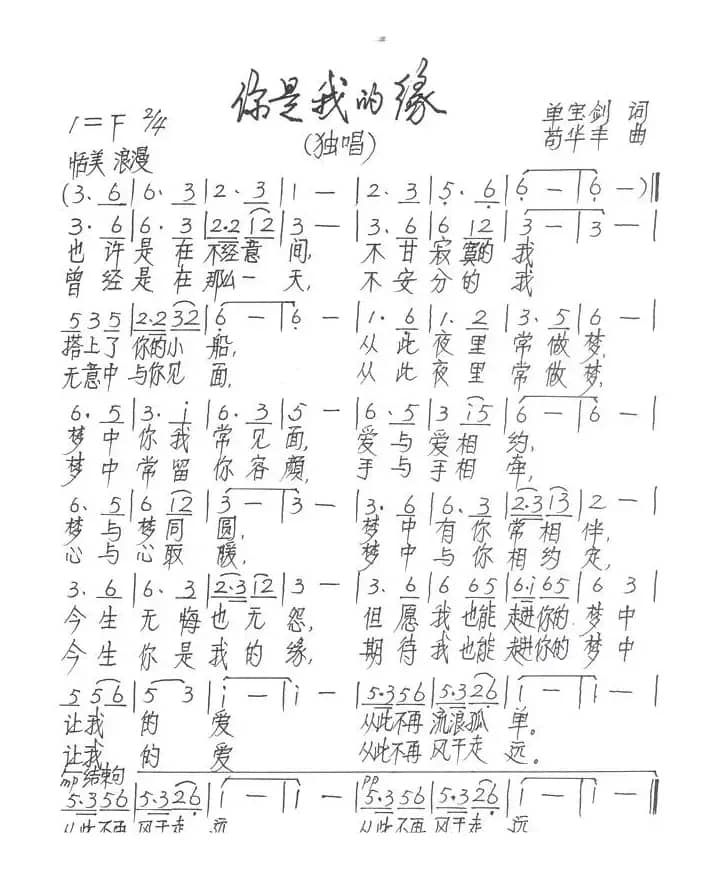 你是我的缘
(独唱)
1=F 2/4
单宝剑 词
苟华丰 曲
恬美 浪漫
(3. 6 | 6. 3 | 2. 3 | 1 — | 2. 3 | 5. 6 | 6 — | 6 —)||
3. 6 | 6. 3 | 2·2 12 | 3 — | 3. 6 | 6 12 | 3 — | 3 — |
也许是在不经意 间, 不甘寂寞的 我
曾经是在那么一 天, 不安分的 我
5 3 5 | 2·2 32 | 6 — | 6 — | 1. 6 | 1. 2 | 3. 5 | 6 — |
搭上了 你的小 船, 从此夜里 常做梦,
无意中 与你见 面, 从此夜里 常做梦,
6. 5 | 3. i | 6. 3 | 5 — | 6. 5 | 3 i5 | 6 — | 6 — |
梦中你我常见面, 爱与爱相 约,
梦中常留你容颜, 手与手相 牵,
6. 5 | 6 i2 | 3 — | 3 — | 3. 6 | 6. 3 | 2·3 i3 | 2 — |
梦与梦同 圆, 梦中有你常相 伴,
心与心取 暖, 梦中与你相约 定,
3. 6 | 6. 3 | 2·3 12 | 3 — | 3. 6 | 6 65 | 6·i 65 | 6 3 |
今生无悔也无 怨, 但愿我也能 走进你的 梦中
今生你是我的 缘, 期待我也能 走进你的 梦中
5 5 6 | 5 3 | i — | i — | 5·3 56 | 5·3 26 | i — | i — |
让我 的 爱 从此不再 流浪孤 单。
让我 的 爱 从此不再 风干走 远。
mp 结束句
pp
5·3 56 | 5·3 26 | i — | i — | 5·3 56 | 5·3 26 | i — | i — ||
从此不再 风干走 远 从此不再 风干走 远